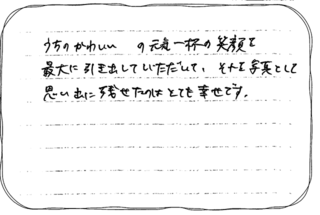 うちのかわいい の元気一杯の笑顔を
最大に引き出していただいて、それを写真として
思い出に残せたのはとても幸せです。